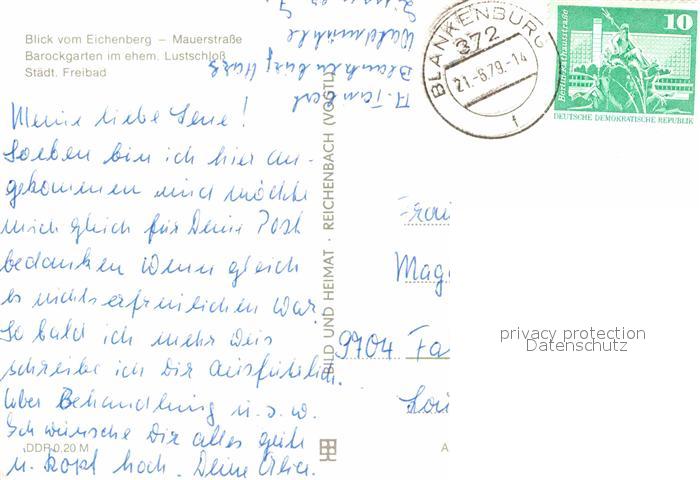 Blick vom Eichenberg – Mauerstraße
Barockgarten im ehem. Lustschloß
Städt. Freibad
Waldmühle
Blankenburg Harz
Meine liebe Lene!
Soeben bin ich hier an-
gekommen und möchte
mich gleich für Deine Post
bedanken wenn gleich
es nichts erfreulichen war.
So bald ich mehr weis
schreibe ich Dir ausführlich.
über Behandlung u.s.w.
Ich wünsche Dir alles gute
u. Kopf hoch. Deine
DDR 0,20 M
BILD UND HEIMAT · REICHENBACH (VOGTL)
BLANKENBURG
372
21.-6.79.-14
f
Berlin-Rathausstraße
10
DEUTSCHE DEMOKRATISCHE REPUBLIK
Frau
Mag
9704 Fa
A
privacy protection
Datenschutz